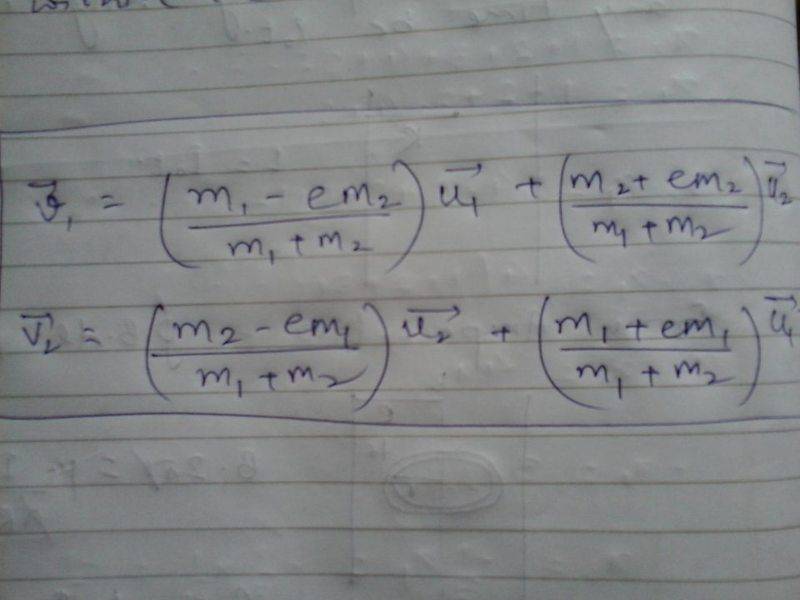 v⃗₁ = ( (m₁ - em₂) / (m₁ + m₂) ) u⃗₁ + ( (m₂ + em₂) / (m₁ + m₂) ) u⃗₂
v⃗₂ = ( (m₂ - em₁) / (m₁ + m₂) ) u⃗₂ + ( (m₁ + em₁) / (m₁ + m₂) ) u⃗₁